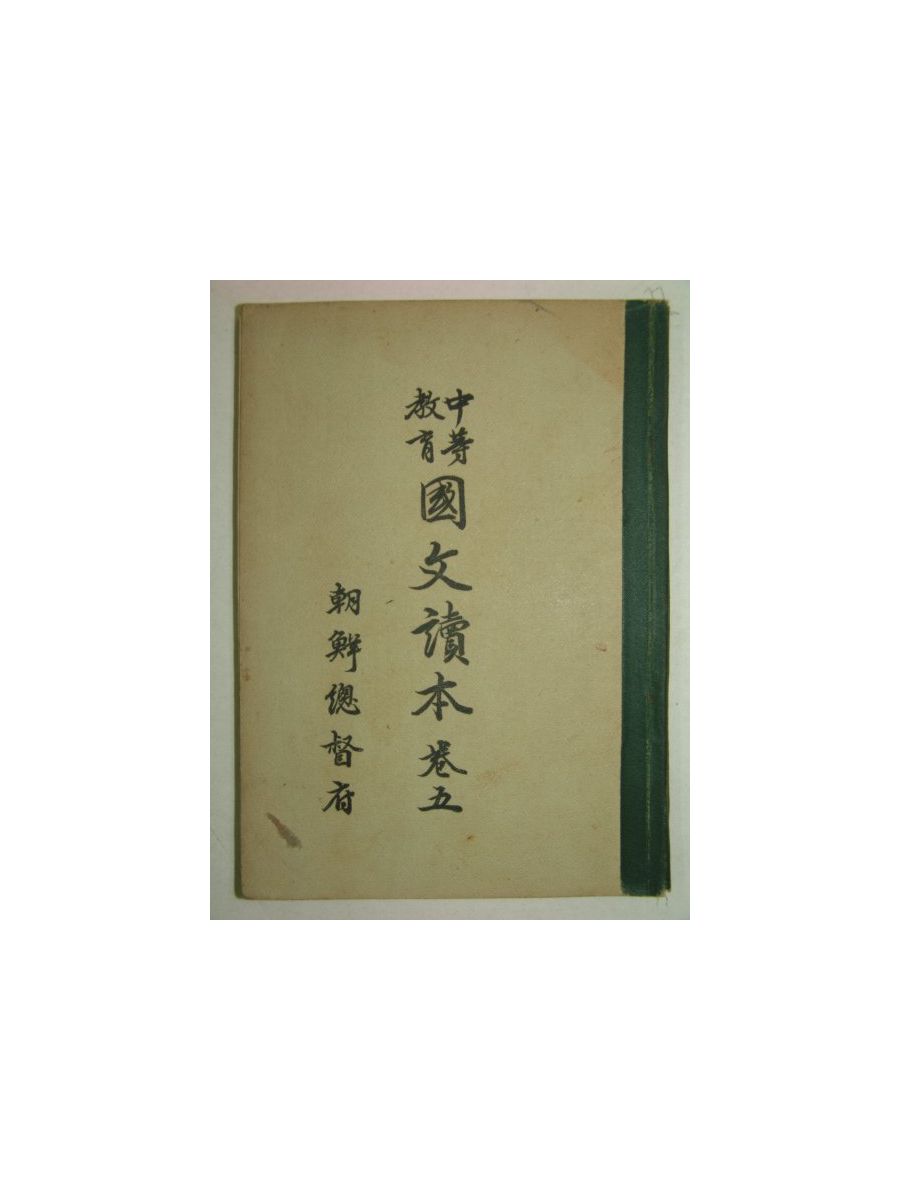 中等
教育
國文讀本 卷五
朝鮮總督府